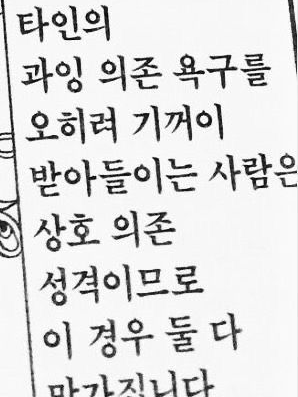 타인의
과잉 의존 욕구를
오히려 기꺼이
받아들이는 사람은
상호 의존
성격이므로
이 경우 둘 다
망가집니다